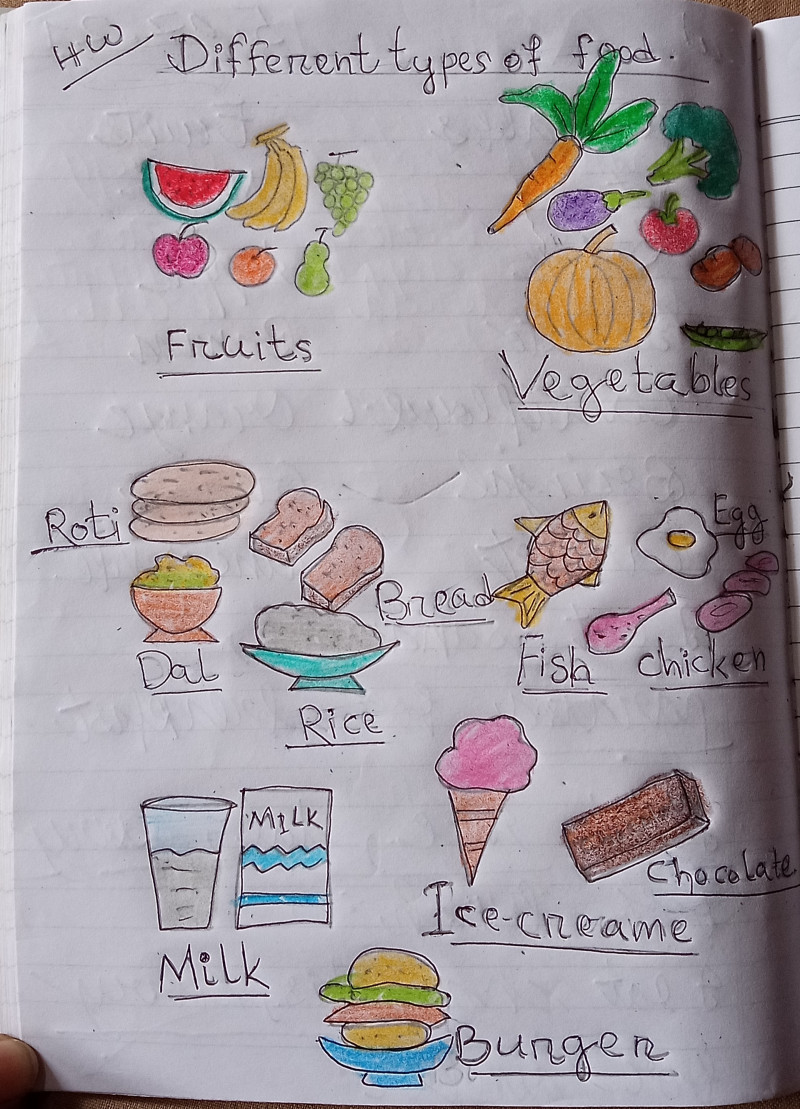 HW
Different types of food.
Fruits
Vegetables
Roti
Bread
Dal
Rice
Egg
Fish
chicken
MILK
Milk
Ice-creame
Chocolate
Burger